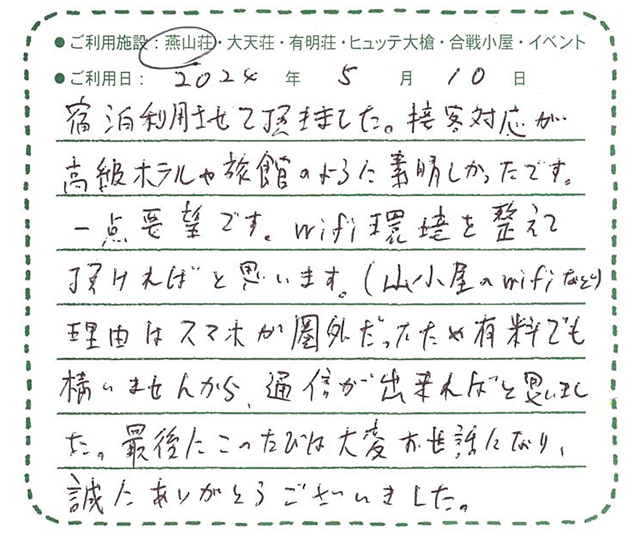 ●ご利用施設：燕山荘・大天荘・有明荘・ヒュッテ大槍・合戦小屋・イベント
●ご利用日： 2024 年 5 月 10 日
宿泊利用させて頂きました。接客対応が
高級ホテルや旅館のように素晴しかったです。
一点要望です。wifi環境を整えて
頂ければと思います。(山小屋のwifiなど)
理由はスマホが圏外だったため有料でも
構いませんから、通信が出来ればと思いまし
た。最後にこのたびは大変お世話になり、
誠にありがとうございました。